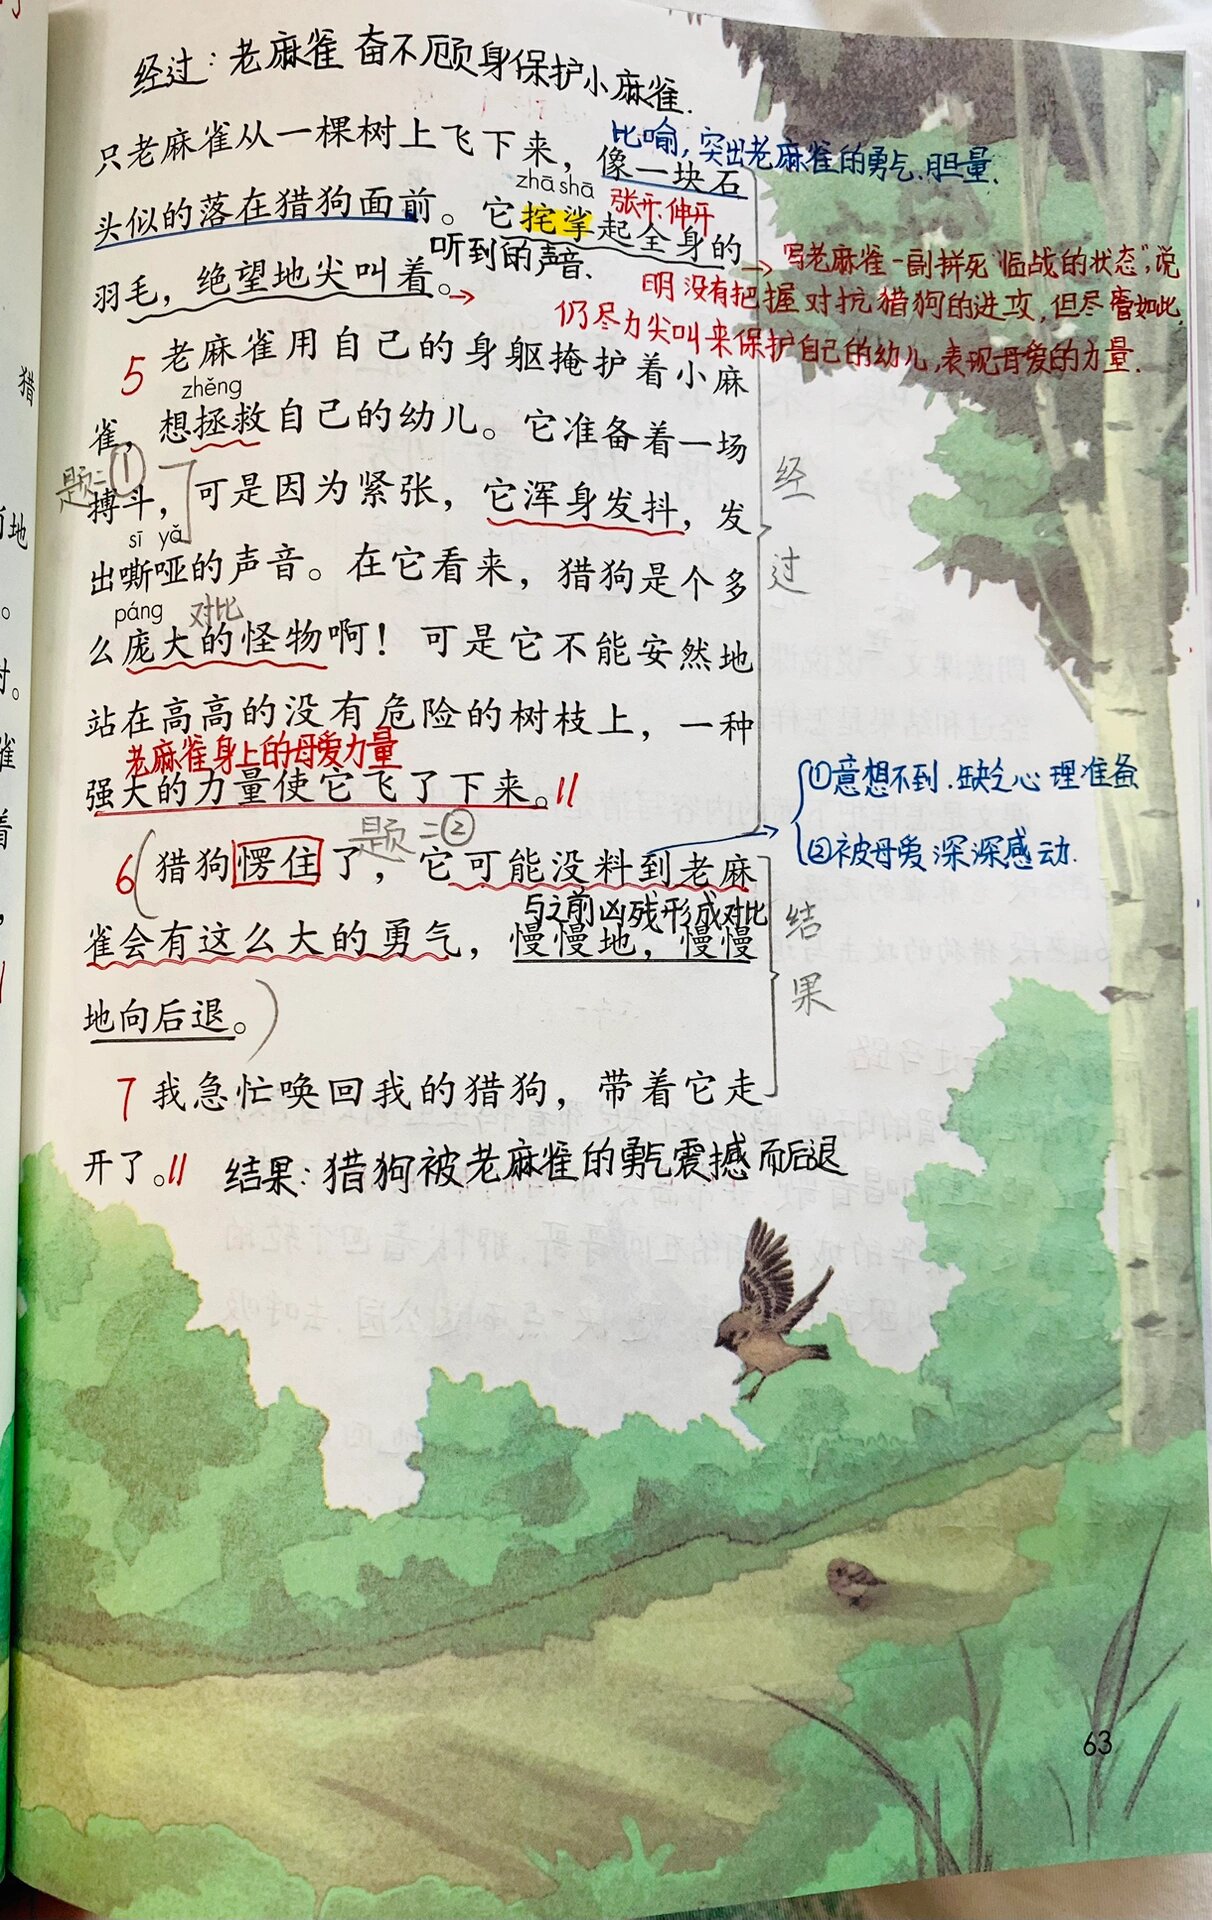 经过：老麻雀奋不顾身保护小麻雀.
只老麻雀从一棵树上飞下来，像一块石
比喻，突出老麻雀的勇气.胆量.
zhā shā
张开.伸开
头似的落在猎狗面前。它挓挲起全身的
听到的声音.
羽毛，绝望地尖叫着。
写老麻雀一副拼死“临战的状态”，说
明没有把握对抗猎狗的进攻，但尽管如此，
仍尽力尖叫来保护自己的幼儿，表现母爱的力量.
5 老麻雀用自己的身躯掩护着小麻
zhěng
雀，想拯救自己的幼儿。它准备着一场
题二①
搏斗，可是因为紧张，它浑身发抖，发
sī yǎ
出嘶哑的声音。在它看来，猎狗是个多
páng 对比
么庞大的怪物啊！可是它不能安然地
站在高高的没有危险的树枝上，一种
老麻雀身上的母爱力量
强大的力量使它飞了下来。
经过
题二②
6 猎狗愣住了，它可能没料到老麻
①意想不到.缺乏心理准备
②被母爱深深感动.
与之前凶残形成对比
雀会有这么大的勇气，慢慢地，慢慢
地向后退。
结果
7 我急忙唤回我的猎狗，带着它走
开了。
结果：猎狗被老麻雀的勇气震撼而后退
63
猎
地
。
时。
雀
着
，